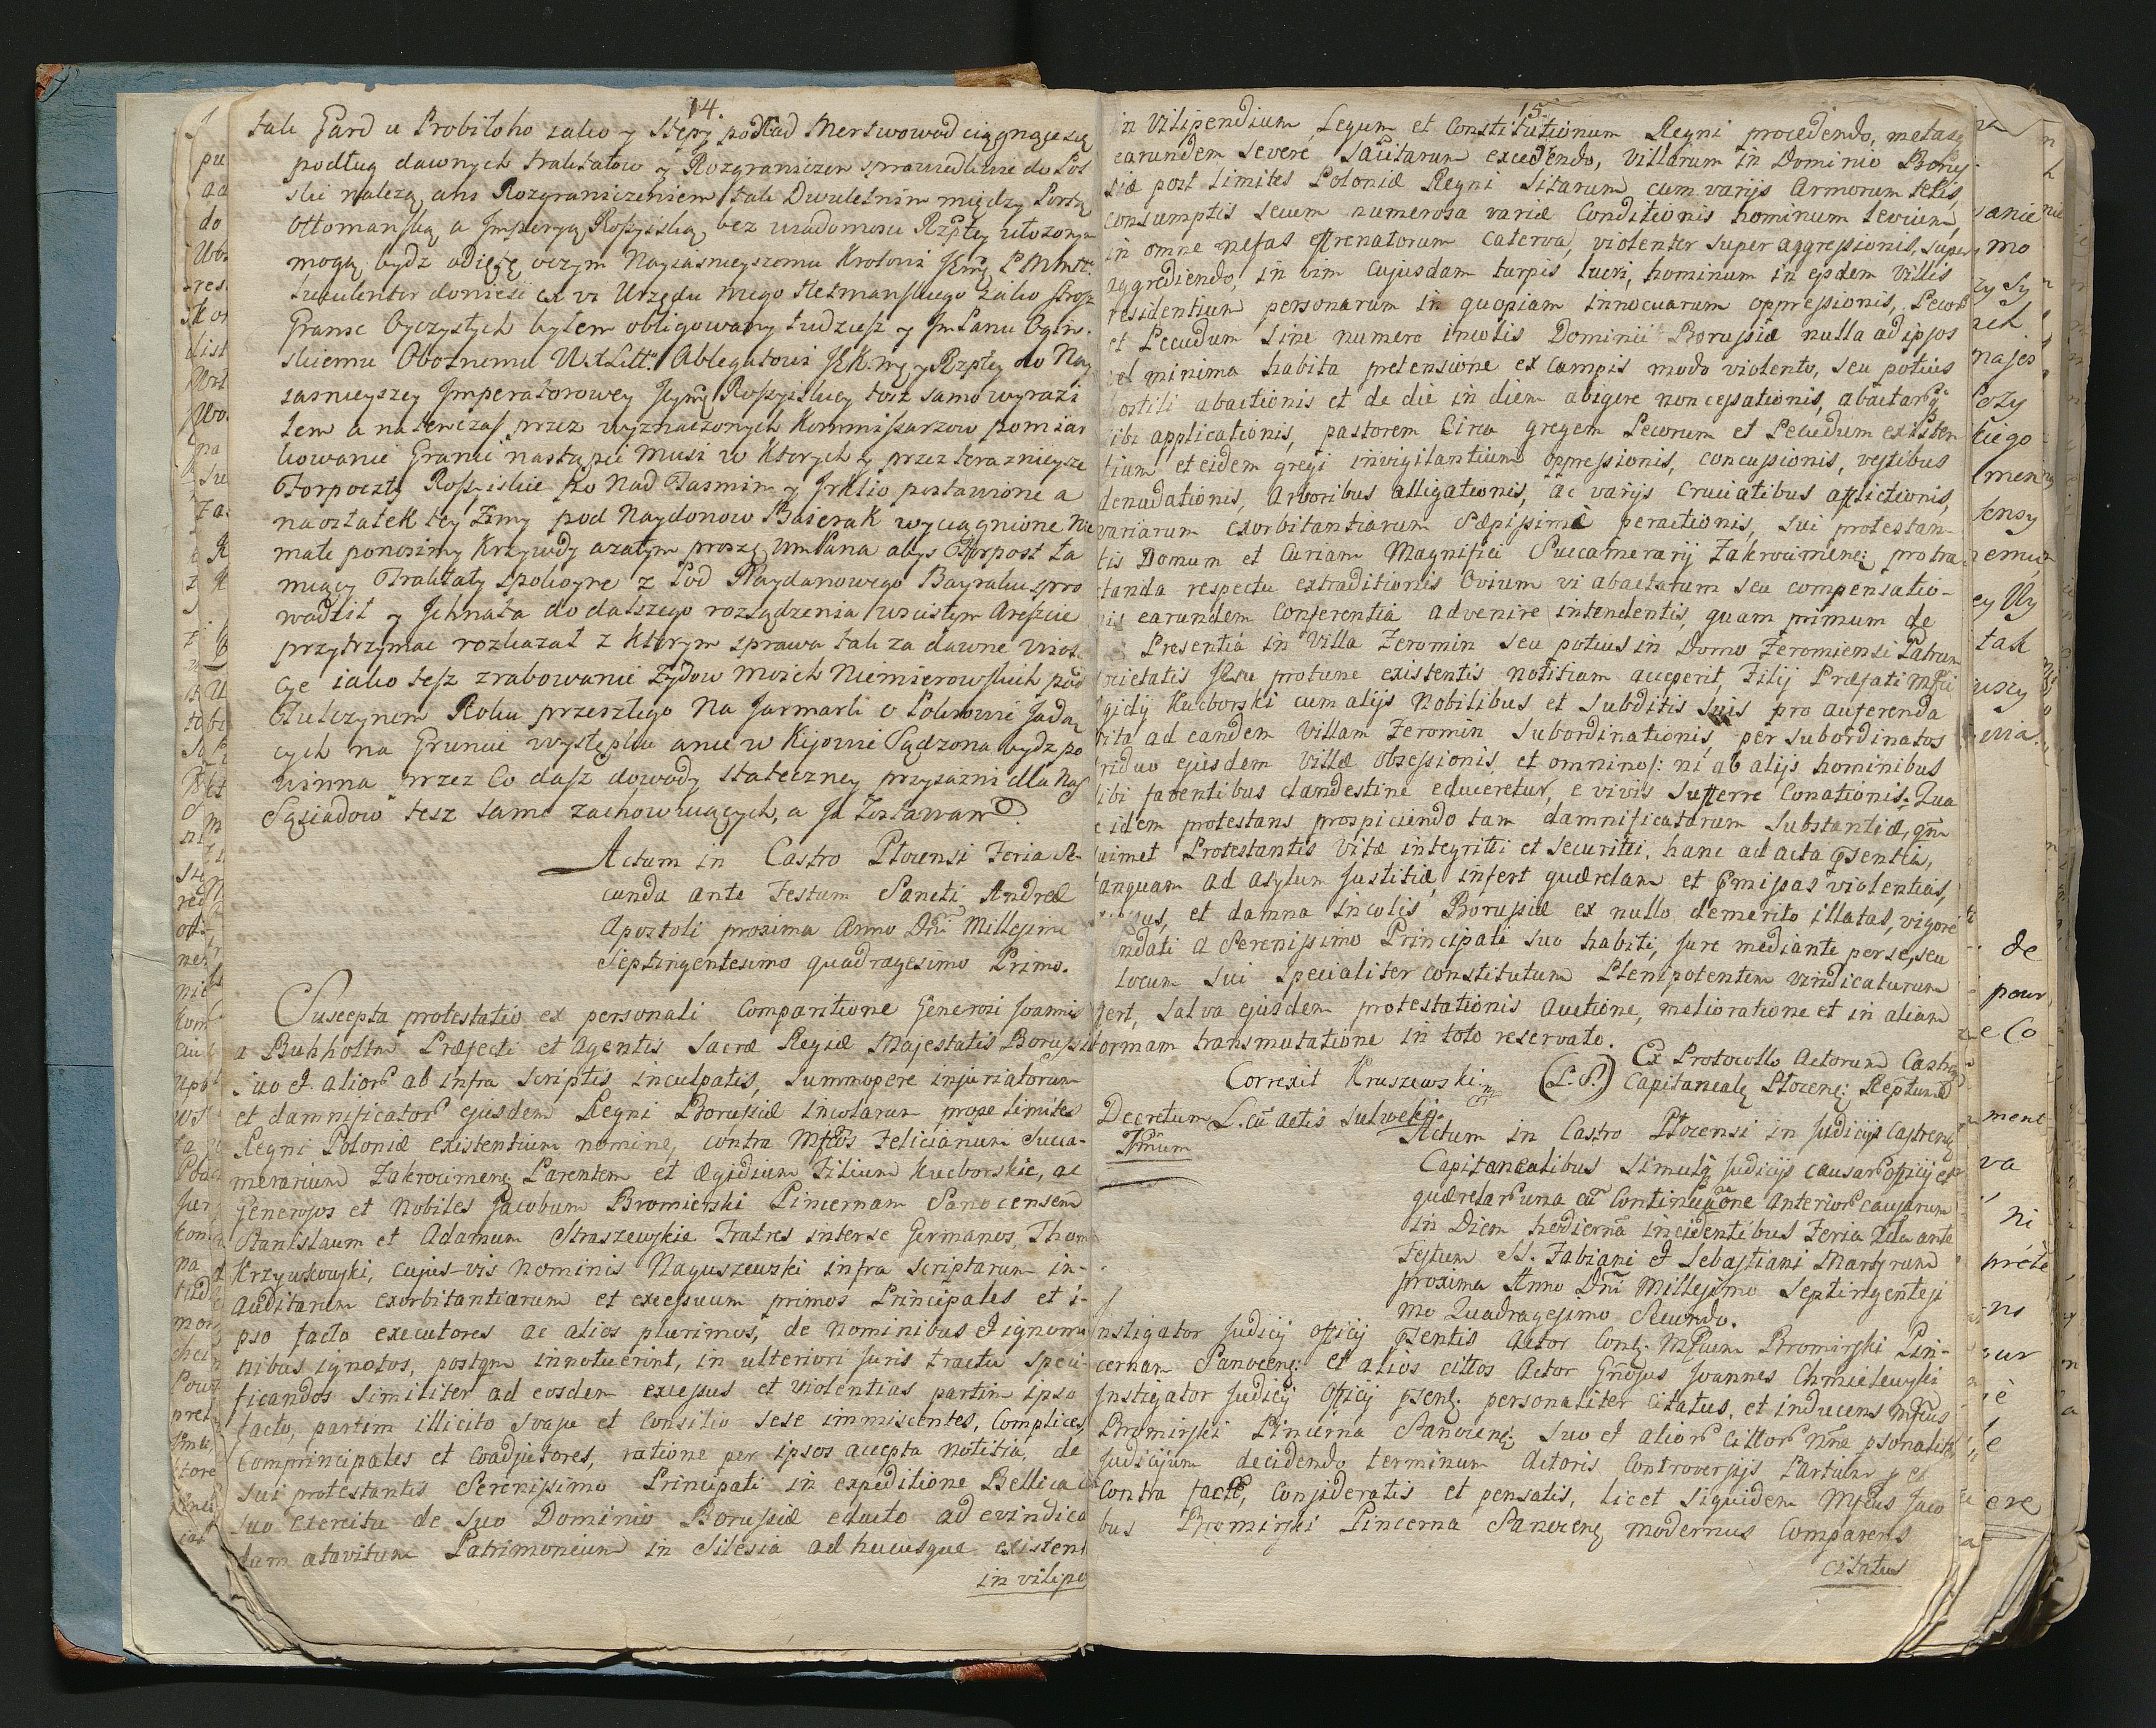 14.
tak Gard u Probitoho iako y Stepy podtad Mertwowod ciągnące się
podług dawnych traktatow y Rozgraniczen sprawiedliwie do Pol
ski należą, ani Rozgraniczeniem tak Dwuletnim między Portą
Ottomańską a Imperyą Rossyiską bez wiadomosci Rzptey ułozonym
mogą bydz odięte, oczym Nayiasnieyszemu Krolowi Jmę P. M. Mst:
luculenter donieść ex vi Urzędu mego Hetmanskiego iako stroż
Granic Oyczystych byłem obligowany tudziesz y Jm Panu Ogin-
skiemu Oboznemu W. X. Litt: Ablegatowi JKMę y Rzptey do Nay
iasnieyszey Imperatorowey Jeymę Rossyiskiey toż samo wyrazi
łem a natenczas przez wyznaczonych Kommissarzow pomiar
kowanie Granic nastąpić musi w ktorych y przez teraznieysze
Forpoczty Rossyiskie po Nad Tasmin y Irklio postawione a
naostatek tey Zimy pod Naydonow Baierak wyciągnione nie
małe ponosimy krzywdy azatym proszę Wm Pana abys Forpost ta
miący Traktaty spokoyne z Pod Maydanowego Bayraku spro
wadził y Jehnata do dalszego rozsądzenia w scisłym Areszcie
przytrzymac rozkazał z ktorym sprawa tak za dawne wiol
cye iako tesz zrabowanie Zydow moich Niemierowskich pod
Tulczynem Roku przeszłego na Jarmark o Pokrowie Jadą
cych na Gruncie występku a nie w Kijowie Sądzona bydz po
winna przez Co dasz dowody stateczney przyiazni dla Nas
Sąsiadow tesz same zachowuiących, a Ja Zostawam
Actum in Castro Plocensi Feria Se-
cunda ante Festum Sancti Andreæ
Apostoli proxima Anno Dni Millesimo
Septingentesimo quadragesimo Primo.
Suscepta protestatio ex personali Comparitione Generosi Joannis
a Buhholtm Præfecti et Agentis Sacræ Regiæ Majestatis Borussiæ
suo et alior ab infra scriptis inculpatis, summopere injuriatorum
et damnificator ejusdem Regni Borussiæ incolarum prope limites
Regni Poloniæ existentium nomine, contra Mfcos Felicianum Succa-
merarium Zakrocimenę Parentem et Ægidium Filium Kucborskie, ac
Generosos et Nobiles Jacobum Bromierski Pincernam Sanocensem
Stanislaum et Adamum Straszewskie Fratres interse Germanos, Thom
Krzywkowski, cujus-vis nominis Naguszewski infra scriptarum in-
auditarum exorbitantiarum et excessuum primos Principales et i-
pso facto executores ac alios plurimos, de nominibus et ignomi
nibus ignotos, postqm innotuerint, in ulteriori juris tractu speci-
ficandos similiter ad eosdem excessus et violentias partim ipso
facto, partim illicito svasu et Consilio sese immiscentes, Complices,
Comprincipales et Coadjutores, ratione per ipsos accepta notitia, de
sui protestantis Serenissimo Principali in expeditione Bellica
suo Exercitu de suo Dominio Borussiæ educto ad evindica
dum atavitum Patrimonium in Silesia ad hucusque existent
in vilipe
15
in Vilipendium Legum et Constitutionum Regni procedendo, metasq
earundem severe sancitarum excedendo, Villarum in Dominio Borus
siæ post Limites Poloniæ Regni Sitarum, cum varijs Armorum telis,
consumptis secum numerosa variæ Conditionis hominum Levium,
in omne nefas effrenatorum caterva, violenter super aggressionis, super
aggrediendo, in vim cujusdam turpis lucri, hominum in ejsdem villis
residentium personarum in quopiam innocuarum oppressionis, Pecor
et Pecudum sine numero incolis Dominii Borussiæ nulla ad ipsos
vel minima habita pretensione ex campis modo violento, seu potius
hostili abactionis et de die in diem abigere non cessationis, abactar
sibi applicationis, pastorem Circa gregem Pecorum et Pecudum existen
tium et eidem gregi invigilantium oppressionis, concussionis, vestibus
denudationis, arboribus alligationis, ac varijs cruciatibus afflictionis,
variarum exorbitantiarum sæpissime peractionis, sui protestan-
tis Domum et Curiam Magnifici Succamerarij Zakrocimenę: pro tra
tanda respectu extraditionis Ovium vi abactarum seu compensatio-
nis earundem Conferentia advenire intendentis, quam primum de
Presentia in Villa Zeromin seu potius in Domo Zeromiensi Patrum
Societatis Jesu protunc existentis notitiam acceperit Filij Præfati Mfci
gidij Kucborski cum alijs Nobilibus et Subditis suis pro auferenda
vita ad eandem Villam Zeromin Subordinationis, per subordinatos
triduo ejusdem Villæ obsessionis, et omninos: ni ab alijs hominibus
sibi faventibus clandestine educeretur, e vivis sufferre Conationis. Qua
eidem protestans prospiciendo tam damnificatarum Substantiæ, qm
suimet Protestantis Vitæ integritti et securitti, hanc ad acta psentia,
tanquam ad asylum Justitiæ, infert querelam et pmissas violentias,
et damna Incolis Borussiæ ex nullo demerito illatas, vigore
ndati a Serenissimo Principali suo habiti, jure mediante per se, seu
locum sui specialiter constitutum Plenipotentem vindicaturum
fert, salva ejusdem protestationis Auctione, melioratione et in aliam
formam transmutatione in toto reservato.
Ex Protocollo Actorum Castren
Correxit Kruszewski (L.S.) Capitanealę Plocenę: Reptum
Decretum L. cū Actis Sulwski.
Imum
Actum in Castro Plocensi in Judicijs Castrenę
Capitanealibus simulq Judicijs causar officij et
querelar una cū Continuãone Anterior causarum
in Diem hodiernā incidentibus Feria 2da ante
Festum SS. Fabiani et Sebastiani Martyrum
proxima Anno Dni Millesimo Septingentesi
mo Quadragesimo Secundo.
Instigator Judicij officij psentis Actor Contę. Mfcum Bromirski Pin-
cernam Sanocenę: et alios cittos Actor Gnosus Joannes Chmielewski
Instigator Judicij officij psenę. personaliter Citatus, et inducens Mfcus
Bromirski Pincerna Sanocenę. suo et alior cittor nne psonaliter
Judicium decidendo terminum Actoris Controversijs Partium et
Contra facte, Consideratis et pensatis, licet siquidem Mfcus Jaco
bus Bromirski Pincerna Sanocenę modernus Comparens
Citatus